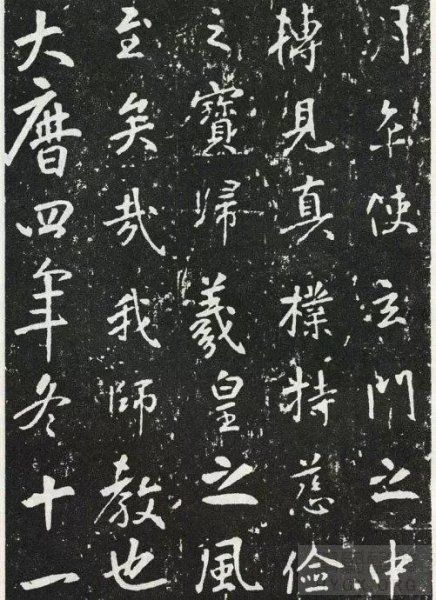 使玄門之中
見真樸持慈儉
之寶歸羲皇之風
至矣哉我師教也
大曆四年冬十一